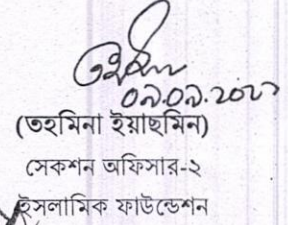 ০৯.০৯.২০২১
(তহমিনা ইয়াছমিন)
সেকশন অফিসার-২
ইসলামিক ফাউন্ডেশন